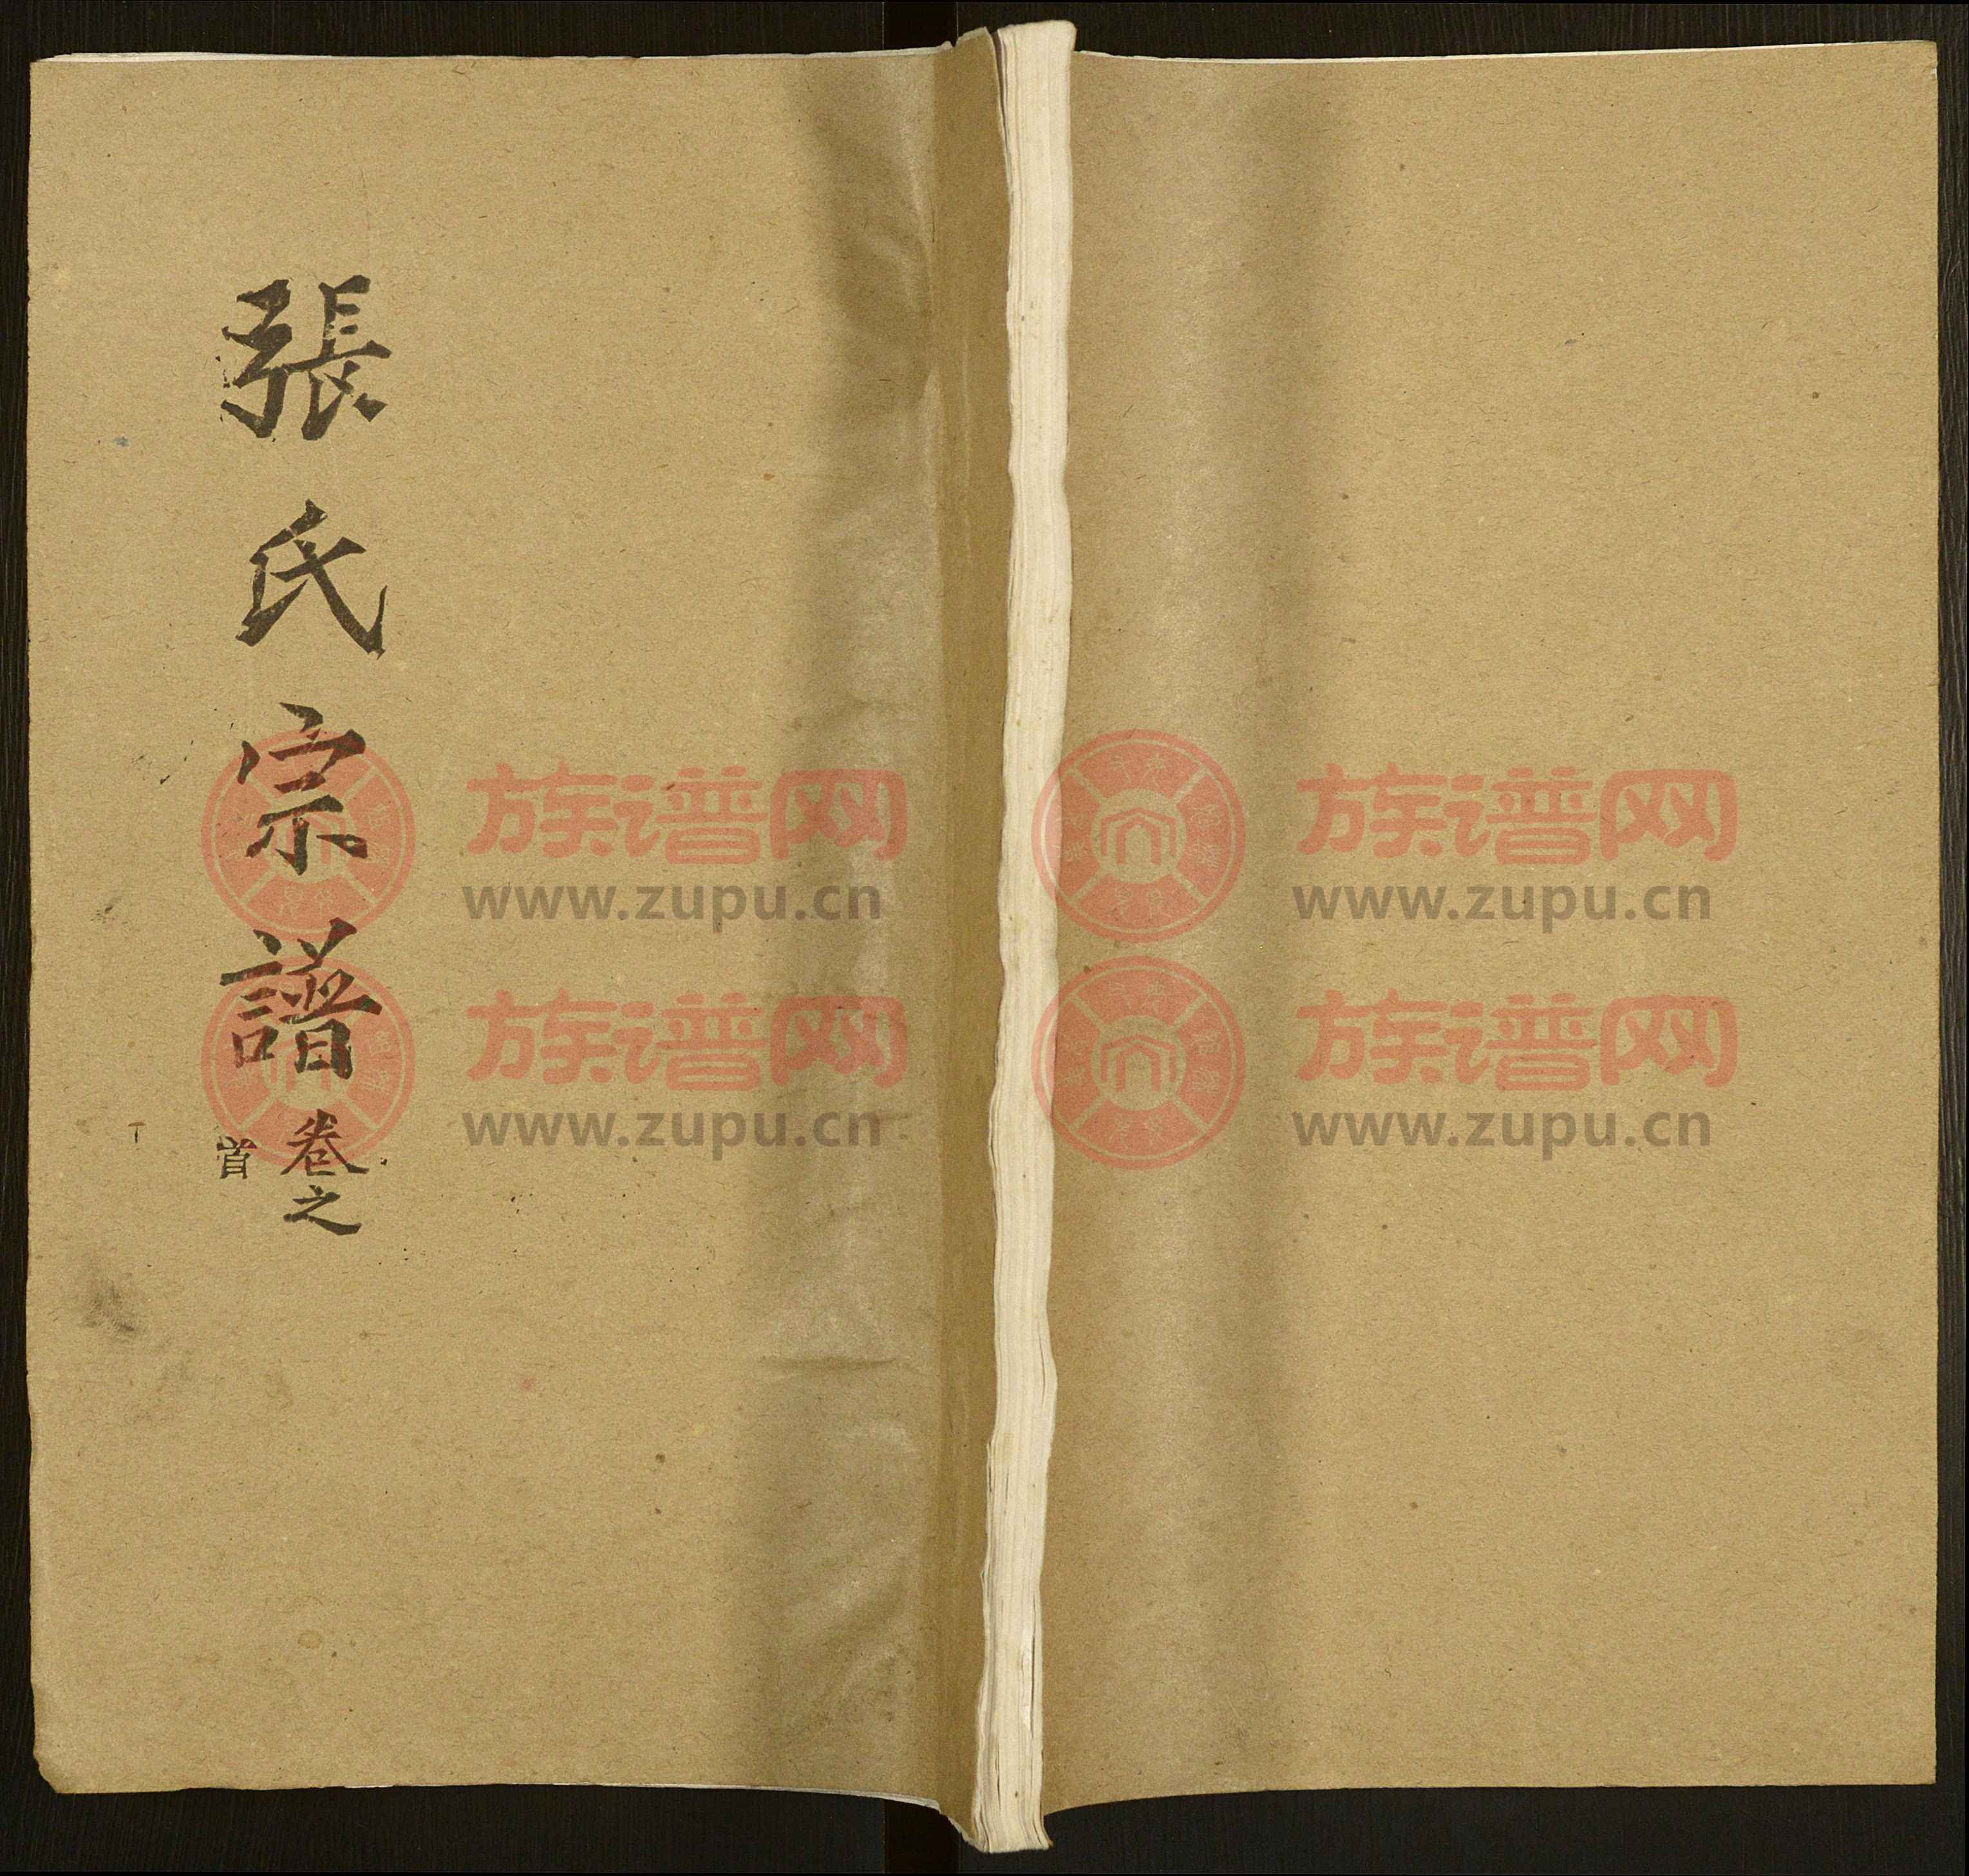 張氏宗譜
卷之
首
族谱网
www.zupu.cn
族谱网
www.zupu.cn
族谱网
www.zupu.cn
族谱网
www.zupu.cn